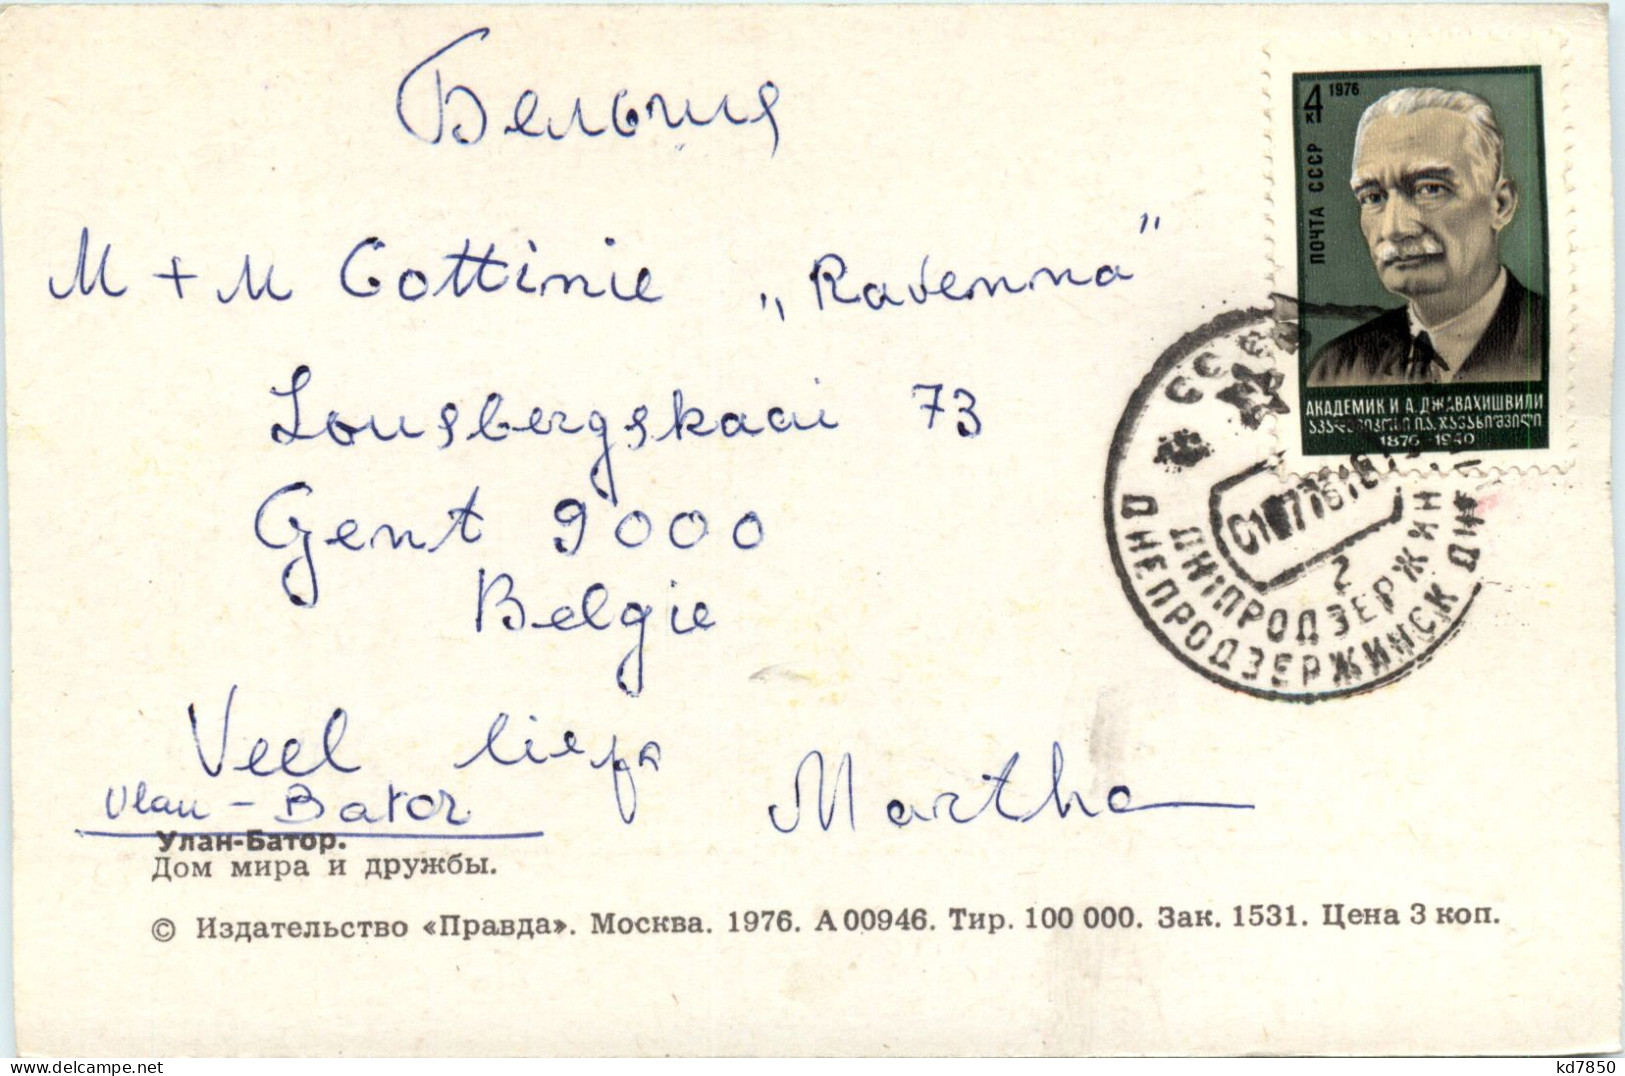 Бельгия
4 к 1976
ПОЧТА СССР
АКАДЕМИК И.А. ДЖАВАХИШВИЛИ
1876-1940
M + M Cottinie „Ravenna”
Lousbergskaai 73
Gent 9000
Belgie
СССР
2
ДНІПРОДЗЕРЖИН
ДНЕПРОДЗЕРЖИНСК
Veel liefs
Martha
Ulan-Bator
Улан-Батор.
Дом мира и дружбы.
© Издательство «Правда». Москва. 1976. А 00946. Тир. 100 000. Зак. 1531. Цена 3 коп.
kd7850